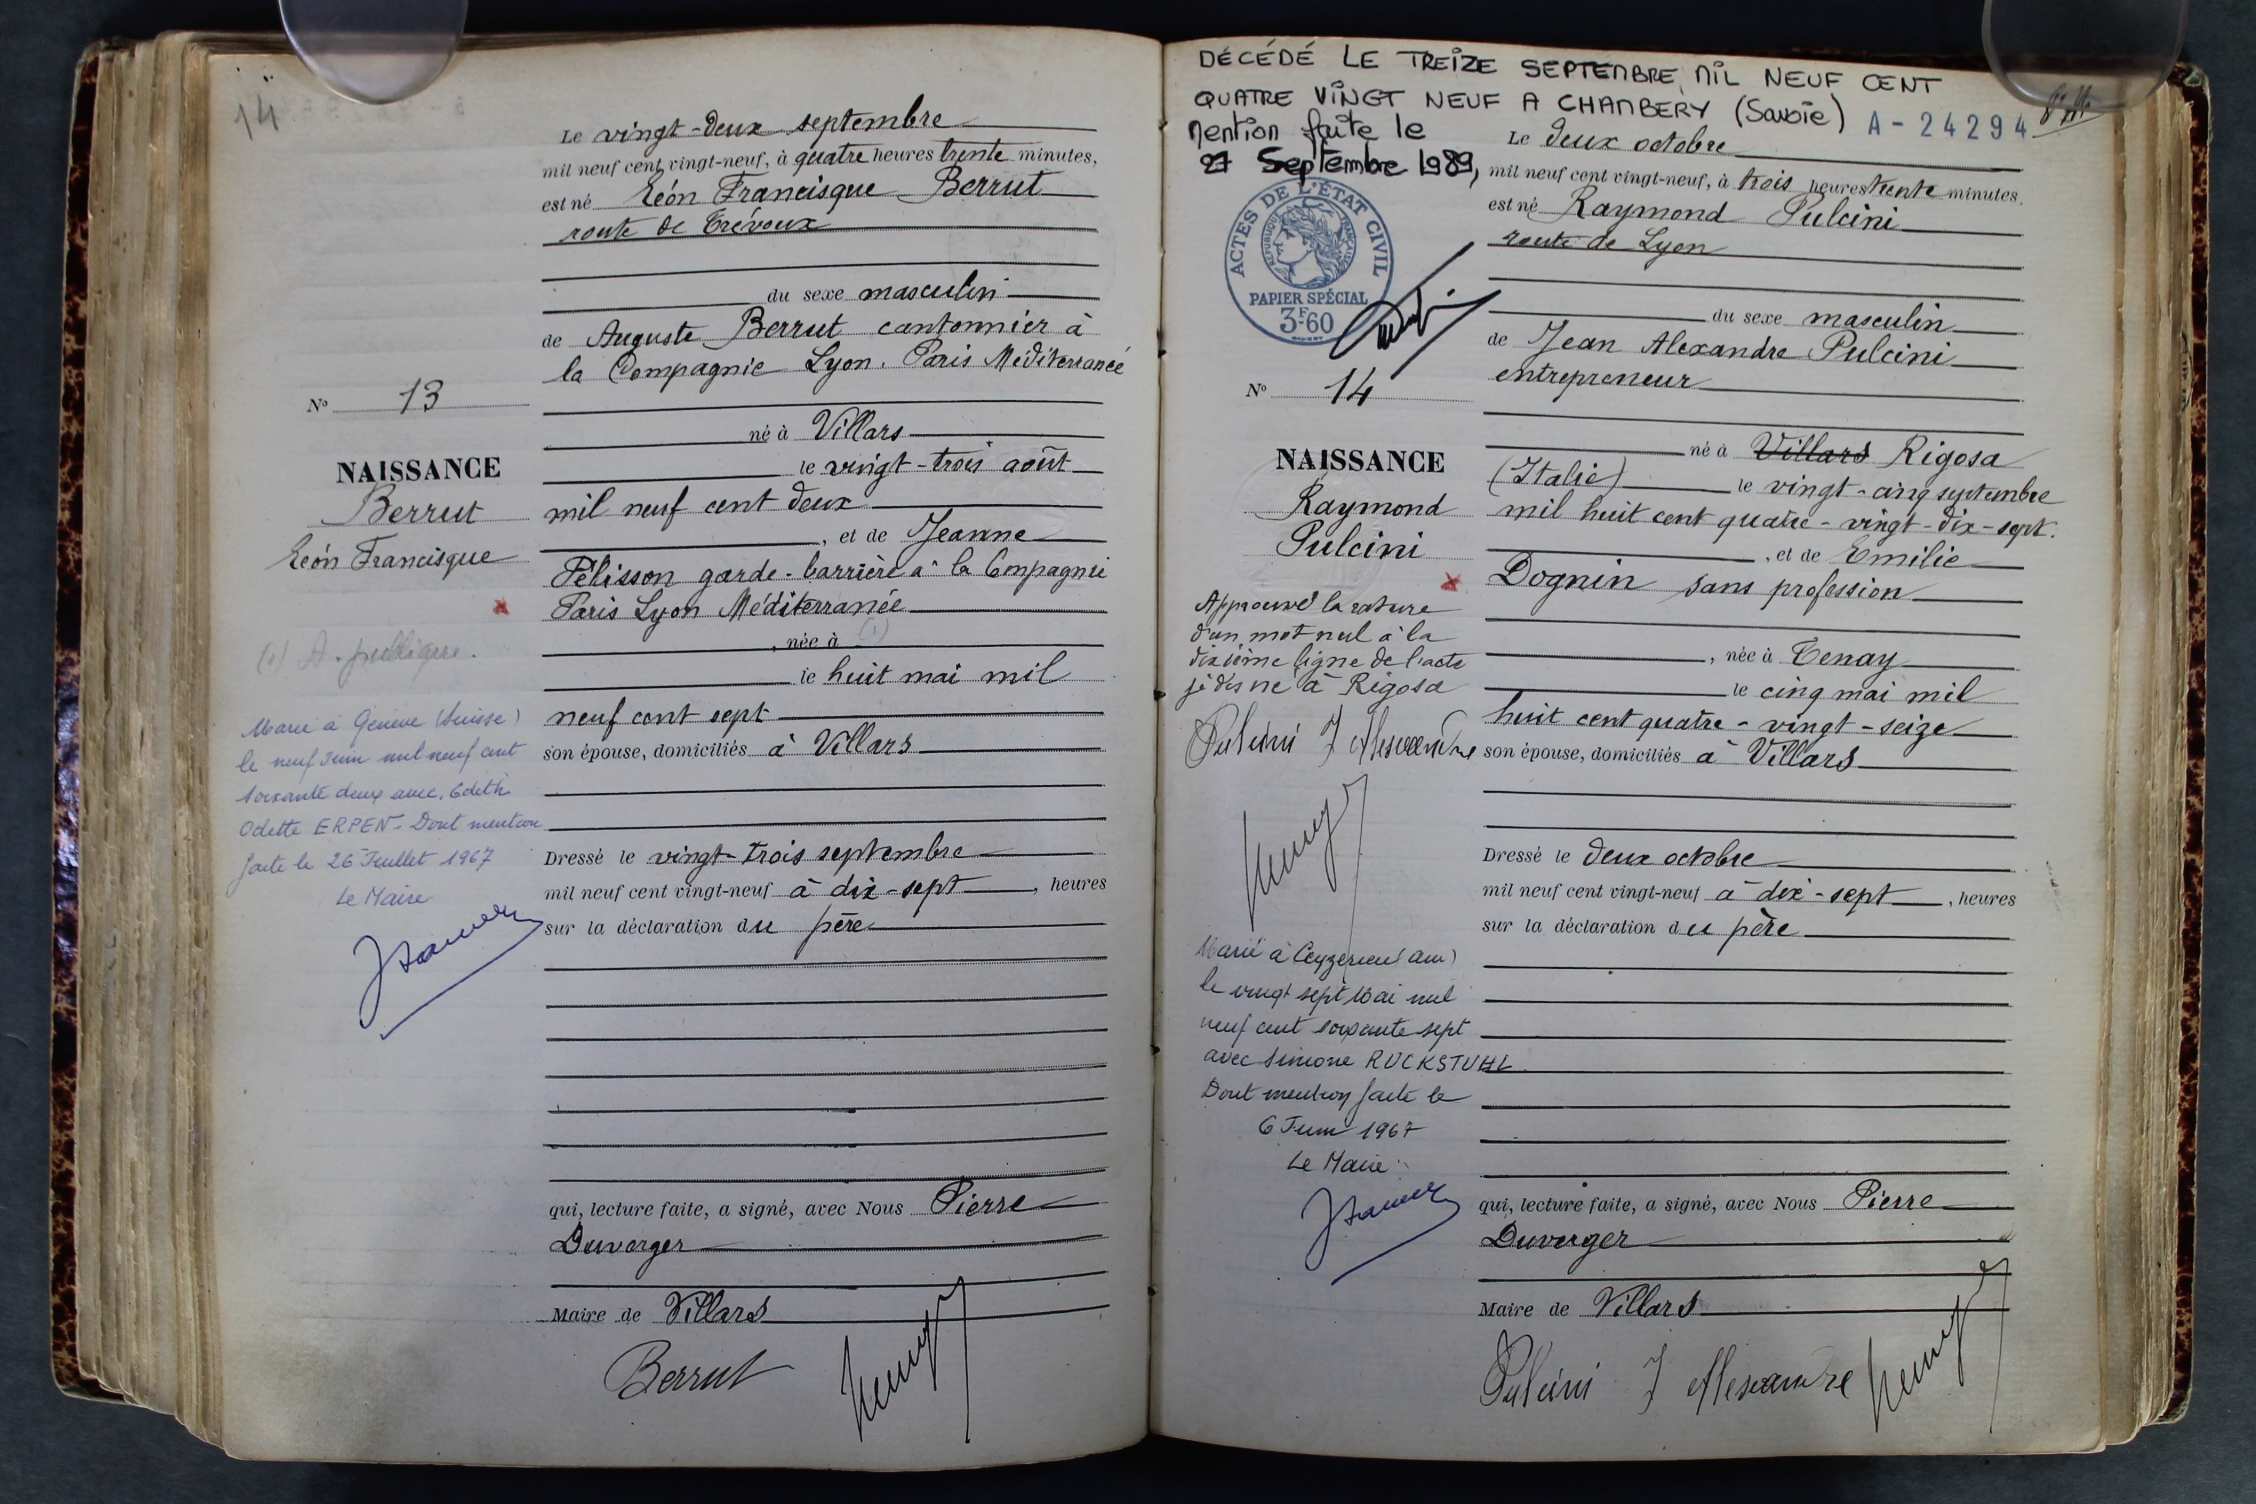 14
Le vingt-deux septembre
mil neuf cent vingt-neuf, à quatre heures trente minutes,
est né Léon Francisque Berrut
route de Trévoux
du sexe masculin
de Auguste Berrut cantonnier à
la Compagnie Lyon. Paris Méditerranée
N° 13
né à Villars
NAISSANCE
le vingt-trois août
Berrut
mil neuf cent deux
Léon Francisque
, et de Jeanne
Pélisson garde-barrière à la Compagnie
Paris Lyon Méditerranée
, née à (1)
(1) A.
le huit mai mil
neuf cent sept
son épouse, domiciliés à Villars
Marié à Genève (Suisse)
le neuf Juin mil neuf cent
soixante deux avec Edith
Odette ERPEN - Dont mention
faite le 26 Juillet 1967
Le Maire
Dressé le vingt-trois septembre
mil neuf cent vingt-neuf à dix-sept, heures
sur la déclaration du père
qui, lecture faite, a signé, avec Nous Pierre
Duverger
Maire de Villars
Berrut
DÉCÉDÉ LE TREIZE SEPTEMBRE MIL NEUF CENT
QUATRE VINGT NEUF A CHAMBERY (Savoie)
Mention faite le
27 Septembre 1989,
A-24294
Le deux octobre
mil neuf cent vingt-neuf, à trois heures trente minutes.
est né Raymond Pulcini
route de Lyon
ACTES DE L'ÉTAT CIVIL
RÉPUBLIQUE FRANÇAISE
PAPIER SPÉCIAL
3F60
du sexe masculin
de Jean Alexandre Pulcini
entrepreneur
N° 14
né à Villars Rigosa
NAISSANCE
(Italie) le vingt-cinq septembre
Raymond
mil huit cent quatre-vingt-dix-sept.
Pulcini
, et de Emilie
Dognin sans profession
Approuvé la rature
d'un mot nul à la
dixième ligne de l'acte
je dis né à Rigosa
Pulcini J Alexandre
, née à Tenay
le cinq mai mil
huit cent quatre-vingt-seize
son épouse, domiciliés à Villars
Dressé le deux octobre
mil neuf cent vingt-neuf à dix-sept, heures
sur la déclaration du père
Marié à Ceyzérieu (Ain)
le vingt sept Mai mil
neuf cent soixante sept
avec Simone RUCKSTUHL
Dont mention faite le
6 Juin 1967
Le Maire
qui, lecture faite, a signé, avec Nous Pierre
Duverger
Maire de Villars
Pulcini J Alexandre